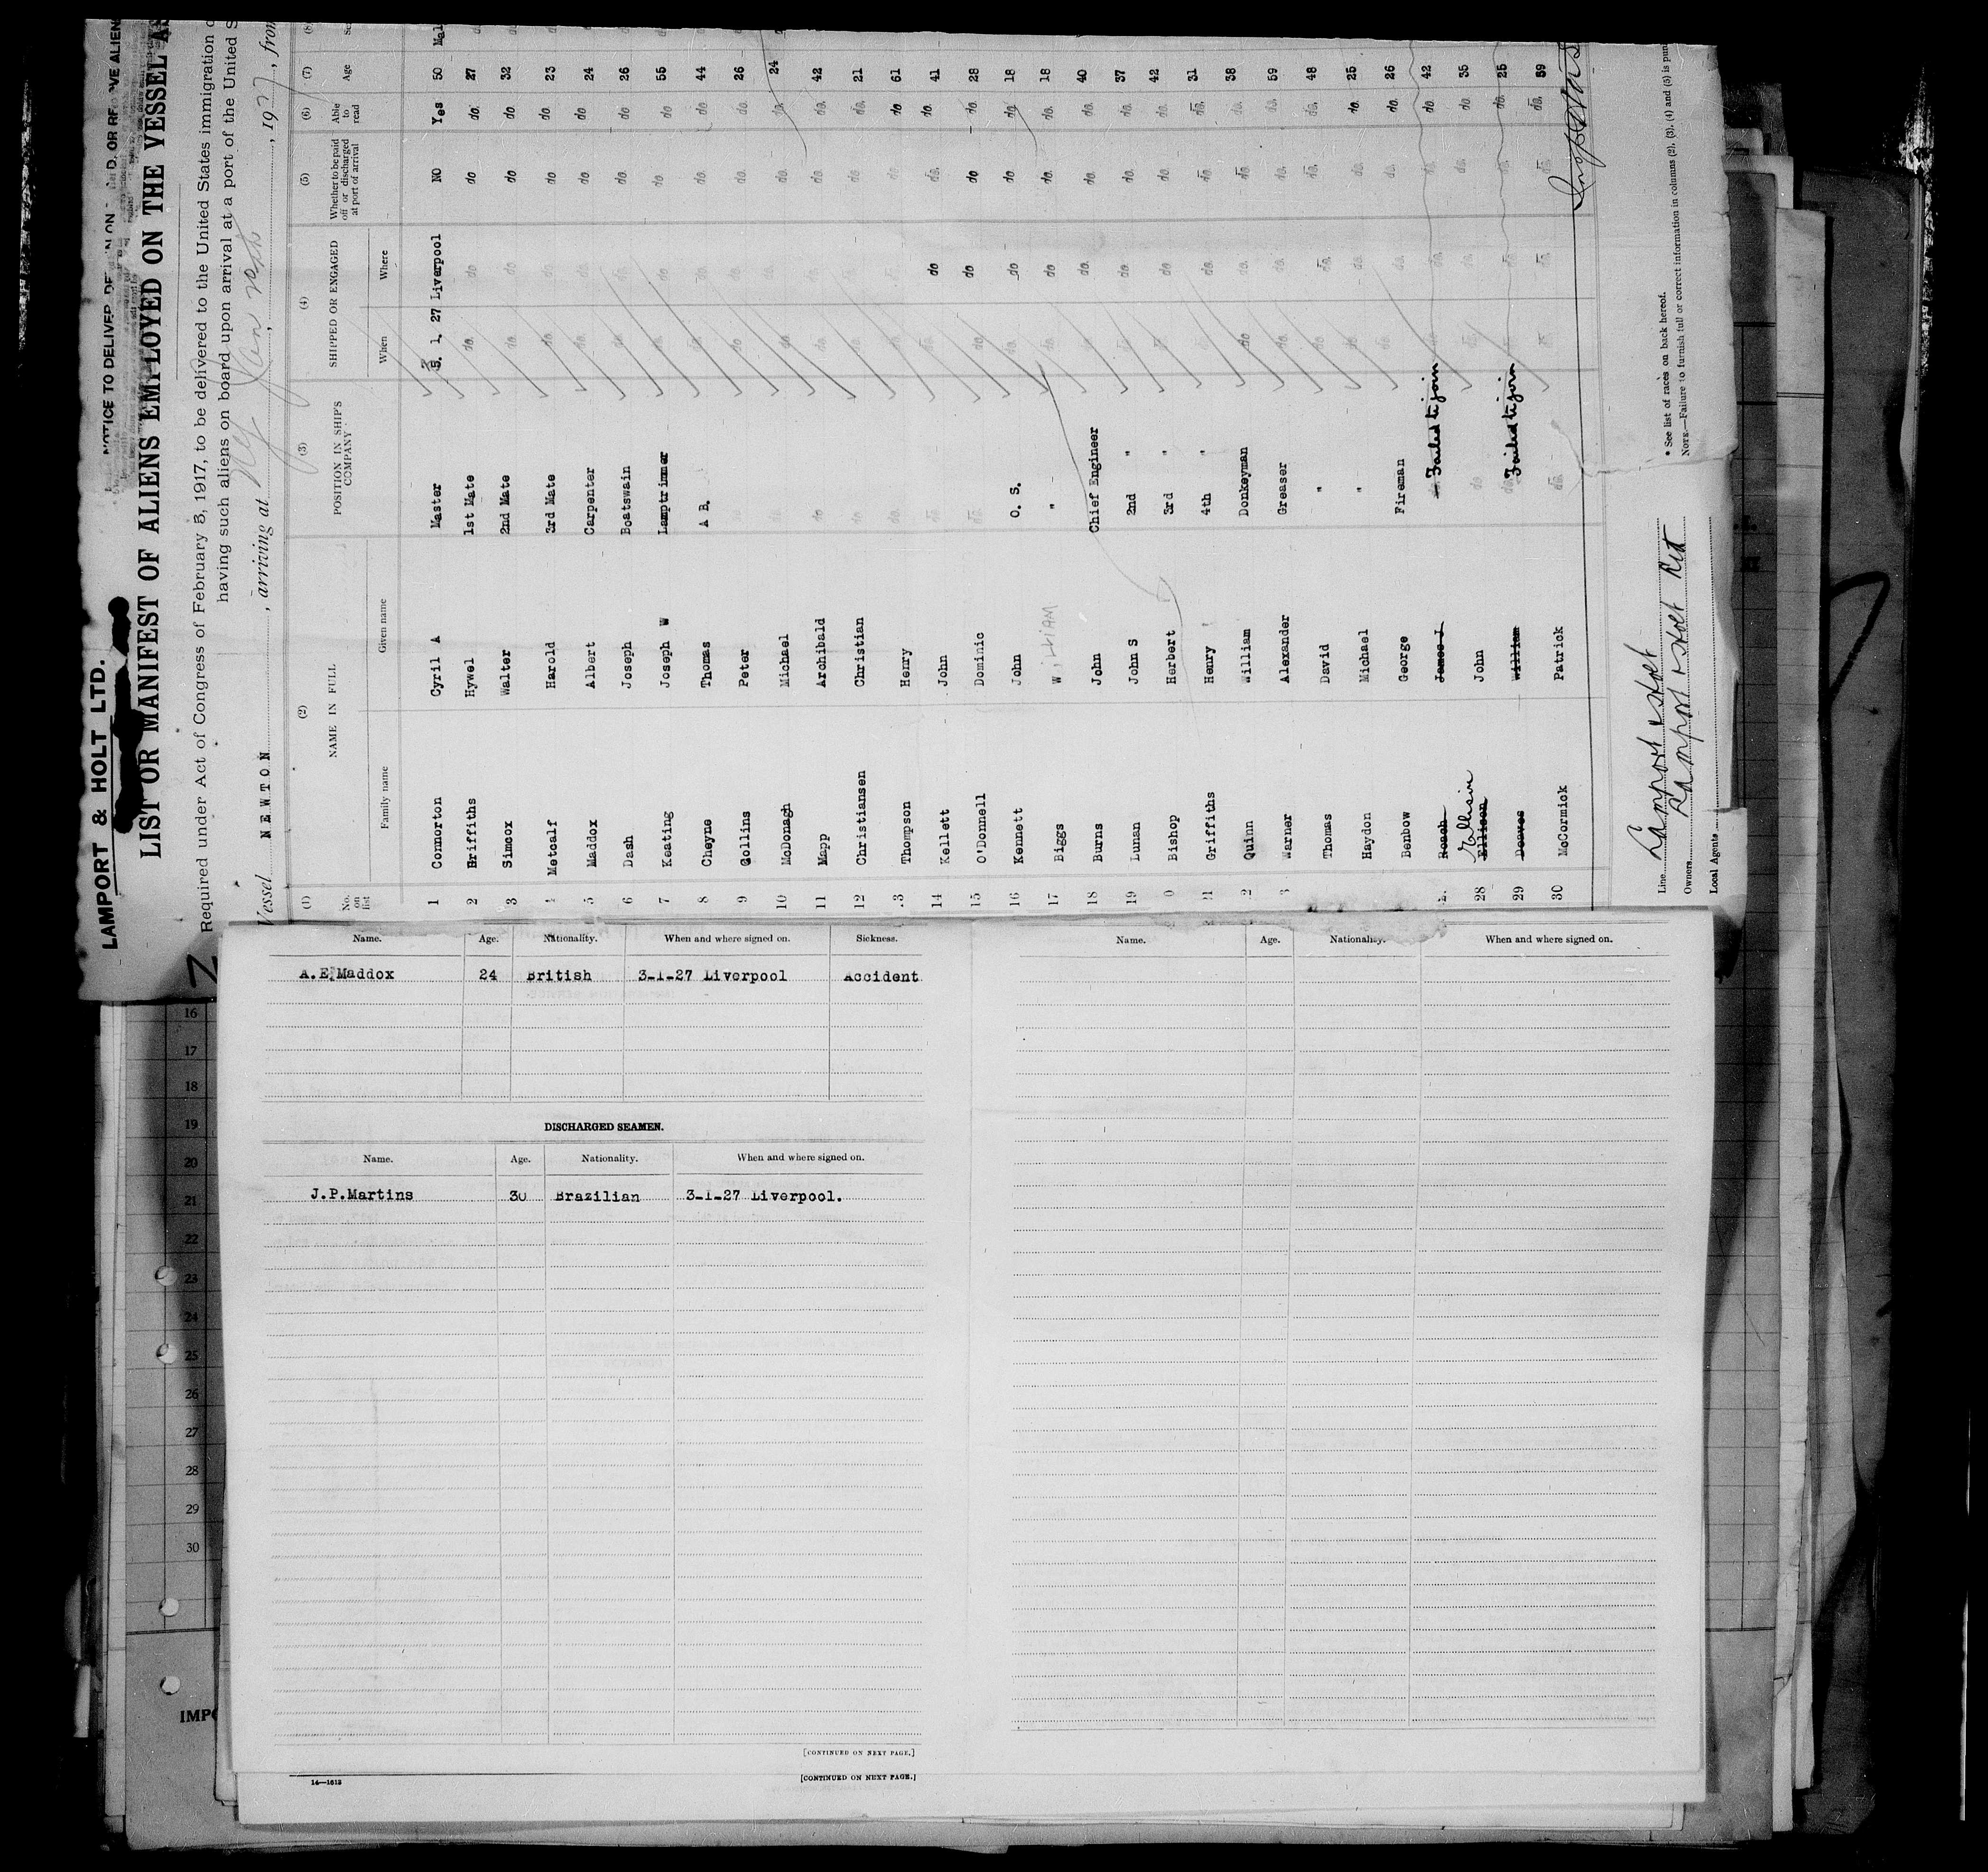 LAMPORT & HOLT LTD.
NOTICE TO DELIVER, OR ALIEN
LIST OR MANIFEST OF ALIENS EMPLOYED ON THE VESSEL AS
Required under Act of Congress of February 5, 1917, to be delivered to the United States immigration
having such aliens on board upon arrival at a port of the United S
Vessel NEWTON, arriving at , 1927, from
(1) (2) (3) (4) (5) (6) (7) (8)
No. on list NAME IN FULL POSITION IN SHIP'S COMPANY SHIPPED OR ENGAGED Whether to be paid off or discharged at port of arrival Able to read Age
Family name Given name When Where
1 Connorton Cyril A Master 3. 1. 27 Liverpool NO Yes 50 Mal
2 Griffiths Hywel 1st Mate do. do do do 27
3 Simcox Walter 2nd Mate do. do do do 32
4 Metcalf Harold 3rd Mate do. do do do 23
5 Maddox Albert Carpenter do. do do do 24
6 Dash Joseph Boatswain do do do. do 26
7 Keating Joseph W Lamptrimmer do do do. do 55
8 Cheyne Thomas A B. do. do. do. do 44
9 Collins Peter do do. do. do. 26
10 McDonagh Michael do. do do. do. do. 24
11 Mapp Archibald do do. do. do. 42
12 Christiansen Christian do do. do. do. 21
13 Thompson Henry do. do. do 61
14 Kellett John do do. do do. do. 41
15 O'Donnell Dominic do. do. do do do. 28
16 Kennett John O. S. do. do do do. 18
17 Biggs WILLIAM " do. do do. do. 18
18 Burns John Chief Engineer do do. do. do. 40
19 Lunan John S 2nd " do. do do. do. 37
20 Bishop Herbert 3rd " do. do do. do. 42
21 Griffiths Henry 4th " do. do. do. do. 31
22 Quinn William Donkeyman do do. do. do. 38
23 Warner Alexander Greaser do. do. do. do. 59
Thomas David " do do. do. do. 48
Haydon Michael " do do. do. do. 25
Benbow George Fireman do. do. do. do. 26
Roach James J Failed to join do do. do. do 42
28 Ellison Ellison John do do. do. do. do. 35
29 Deaves William do. Failed to join do. do. do. 25
30 McCormick Patrick do. do. do. do. do. 39
Line Lamport & Holt
Owners Lamport & Holt Ltd
Local Agents
* See list of races on back hereof.
NOTE.—Failure to furnish full or correct information in columns (2), (3), (4) and (5) is puni
Name. Age. Nationality. When and where signed on. Sickness.
A.E.Maddox 24 British 3-1-27 Liverpool Accident
DISCHARGED SEAMEN.
Name. Age. Nationality. When and where signed on.
J.P.Martins 30 Brazilian 3-1-27 Liverpool.
[CONTINUED ON NEXT PAGE.]
14—1612
[CONTINUED ON NEXT PAGE.]
Name. Age. Nationality. When and where signed on.
16
17
18
19
20
21
22
23
24
25
26
27
28
29
30
IMPO